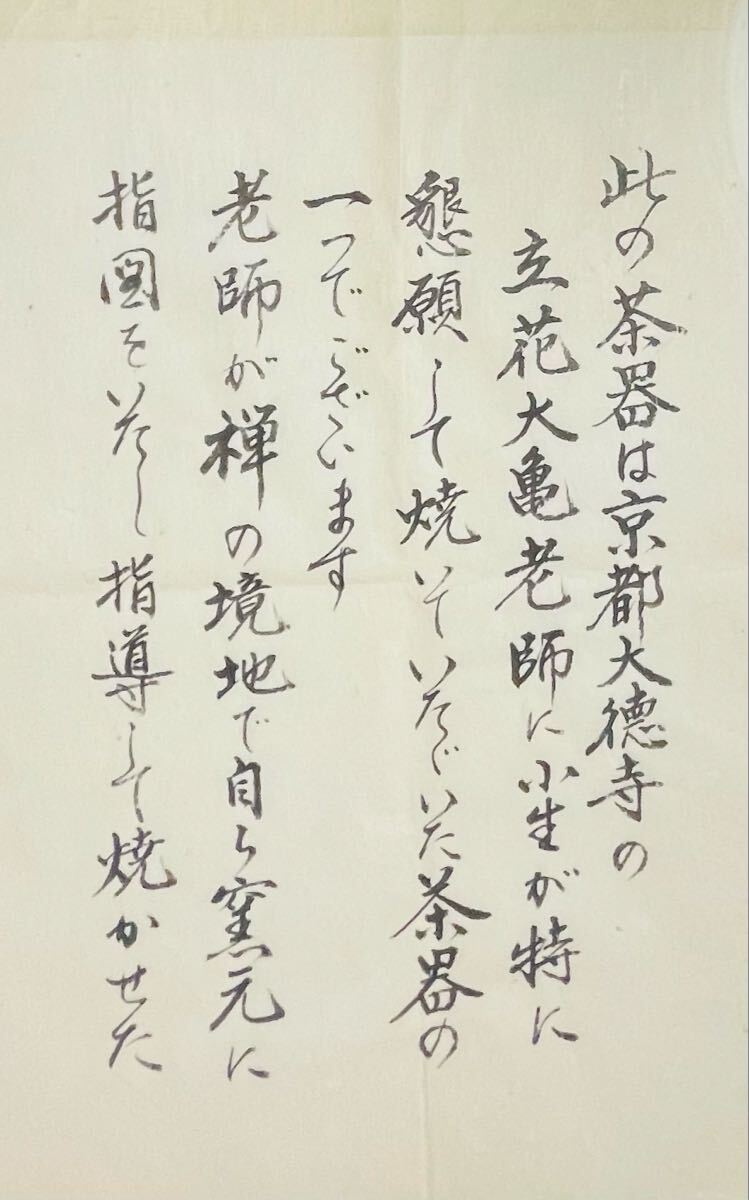 此の茶器は京都大徳寺の
立花大亀老師に小生が特に
懇願して焼いていたゞいた茶器の
一つでございます
老師が禅の境地で自ら窯元に
指図をいたし指導して焼かせた